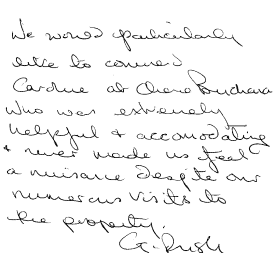 We would particularly
like to commend
Caroline at Chene Buchanan
who was extremely
helpful & accomodating
& never made us feel
a nuisance despite our
numerous visits to
the property.
G. Rush